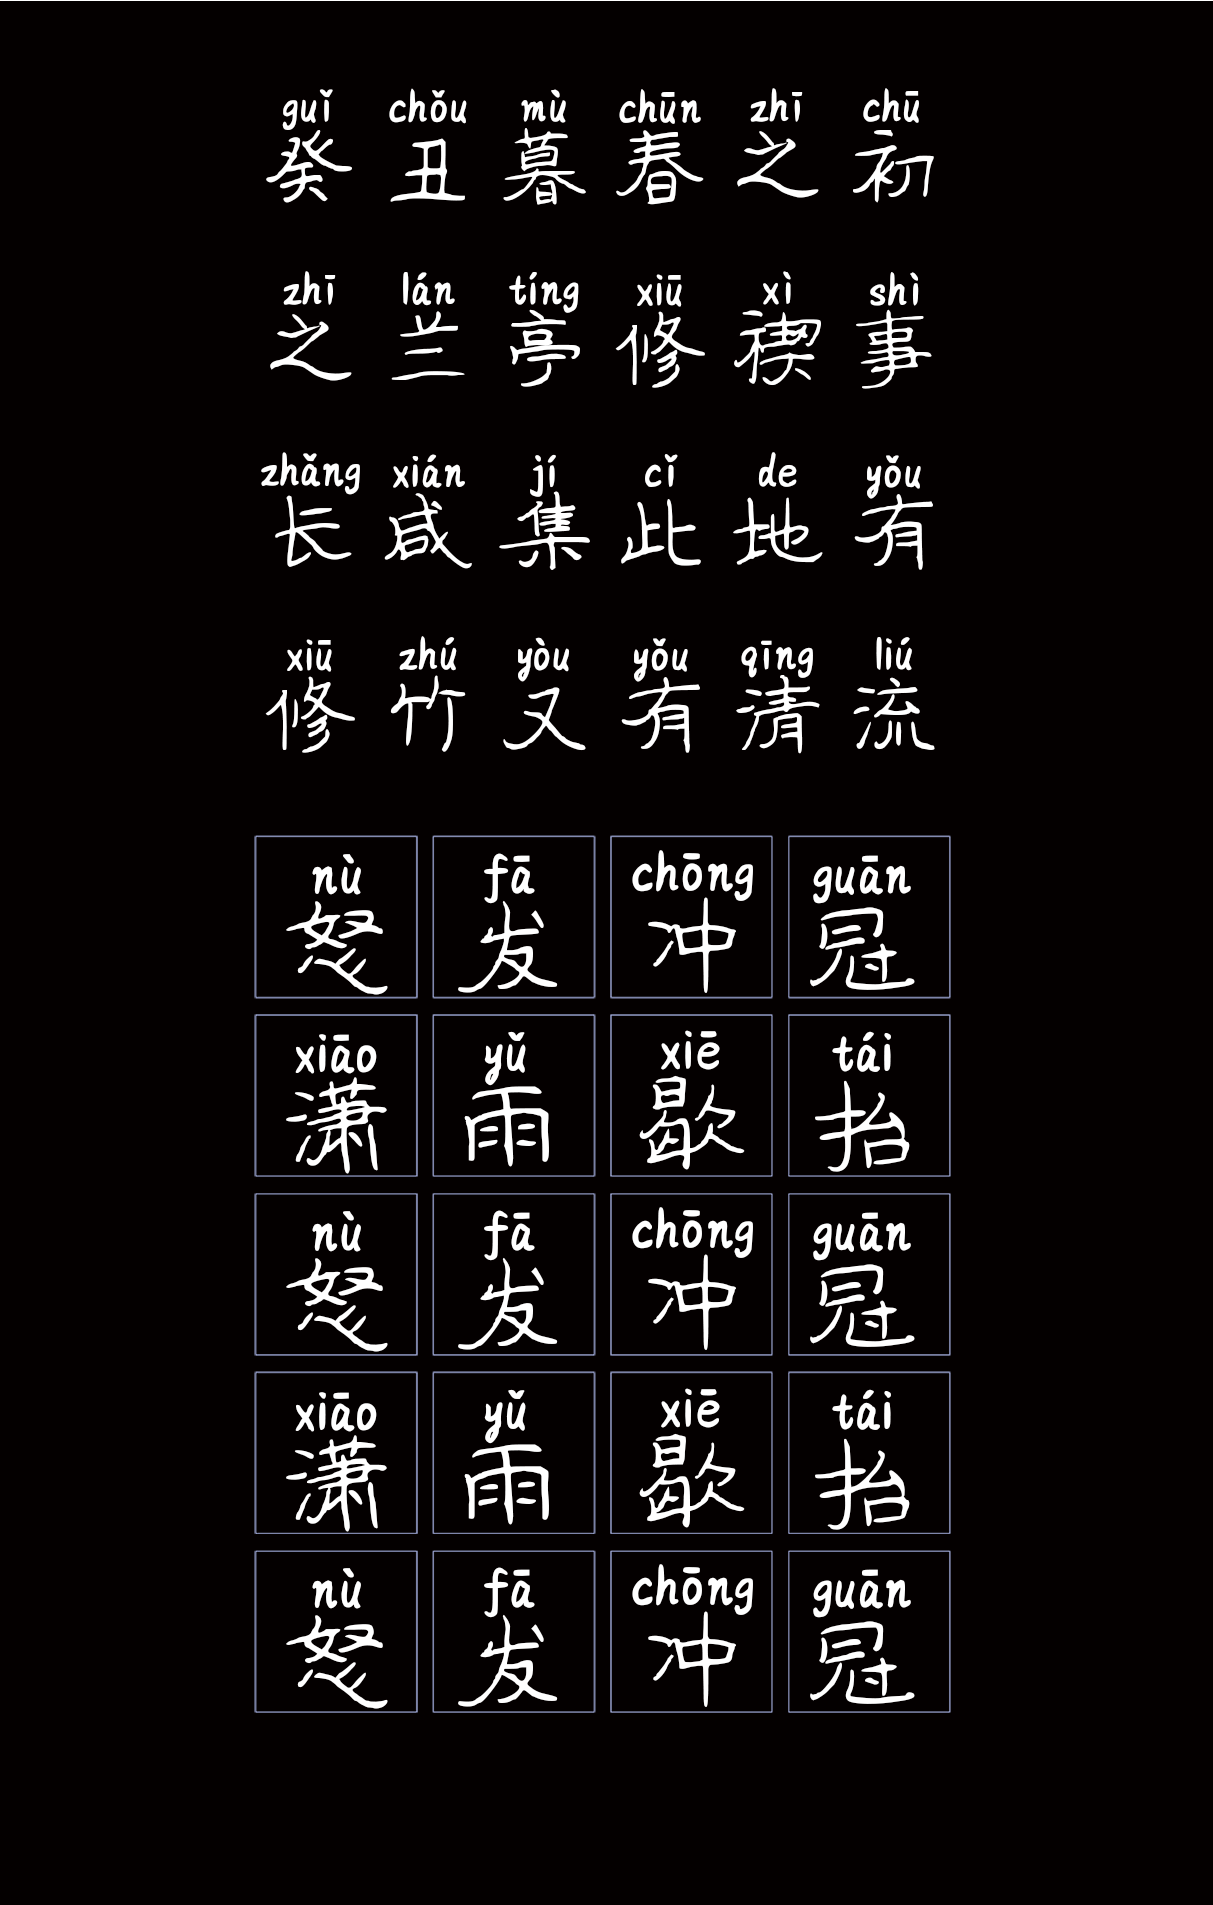 guǐ chǒu mù chūn zhī chū
癸丑暮春之初
zhī lán tíng xiū xì shì
之兰亭修禊事
zhǎng xián jí cǐ de yǒu
长咸集此地有
xiū zhú yòu yǒu qīng liú
修竹又有清流
nù fā chōng guān
怒发冲冠
xiāo yǔ xiē tái
潇雨歇抬
nù fā chōng guān
怒发冲冠
xiāo yǔ xiē tái
潇雨歇抬
nù fā chōng guān
怒发冲冠